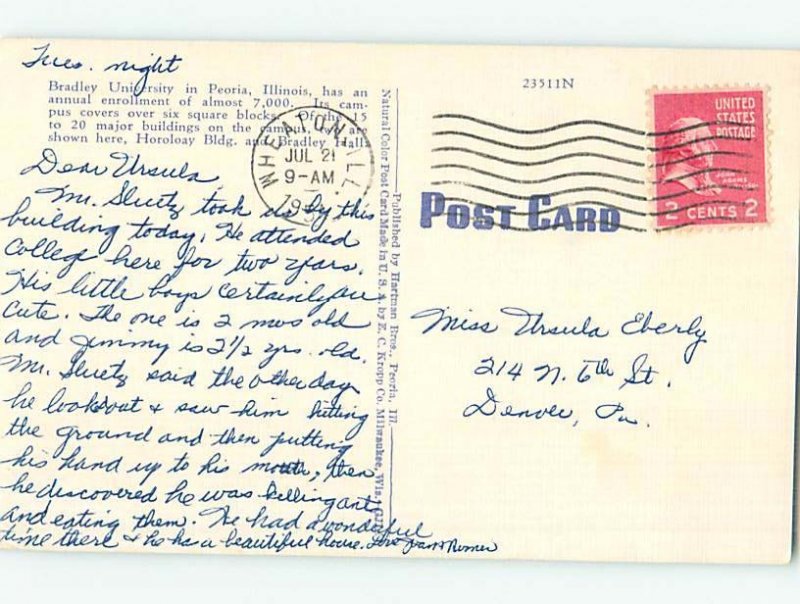 Tues. night
Bradley University in Peoria, Illinois, has an
annual enrollment of almost 7,000. Its cam-
pus covers over six square blocks. Of the 15
to 20 major buildings on the campus, are
shown here, Horoloay Bldg. and Bradley Hall.
Dear Ursula
Mr. Sluetz took us by this
building today. He attended
College here for two years.
His little boys certainly are
cute. The one is 2 mos old
and Jimmy is 2½ yrs. old.
Mr. Sluetz said the other day
he looked out & saw him hitting
the ground and then putting
his hand up to his mouth, then
he discovered he was killing ants
and eating them. We had a wonderful
time there & he has a beautiful house. Love
Natural Color Post Card Made in U.S.A. by E. C. Kropp Co. Milwaukee, Wis.
Published by Hartman Bros., Peoria, Ill.
WHEATON ILL
JUL 21
9-AM
23511N
POST CARD
UNITED
STATES
POSTAGE
JOHN ADAMS
2 CENTS 2
Miss Ursula Eberly
214 N. 6th St.
Denver, Pa.